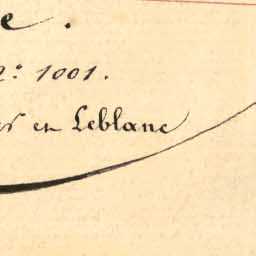 e.
№ 1001.
en Leblanc